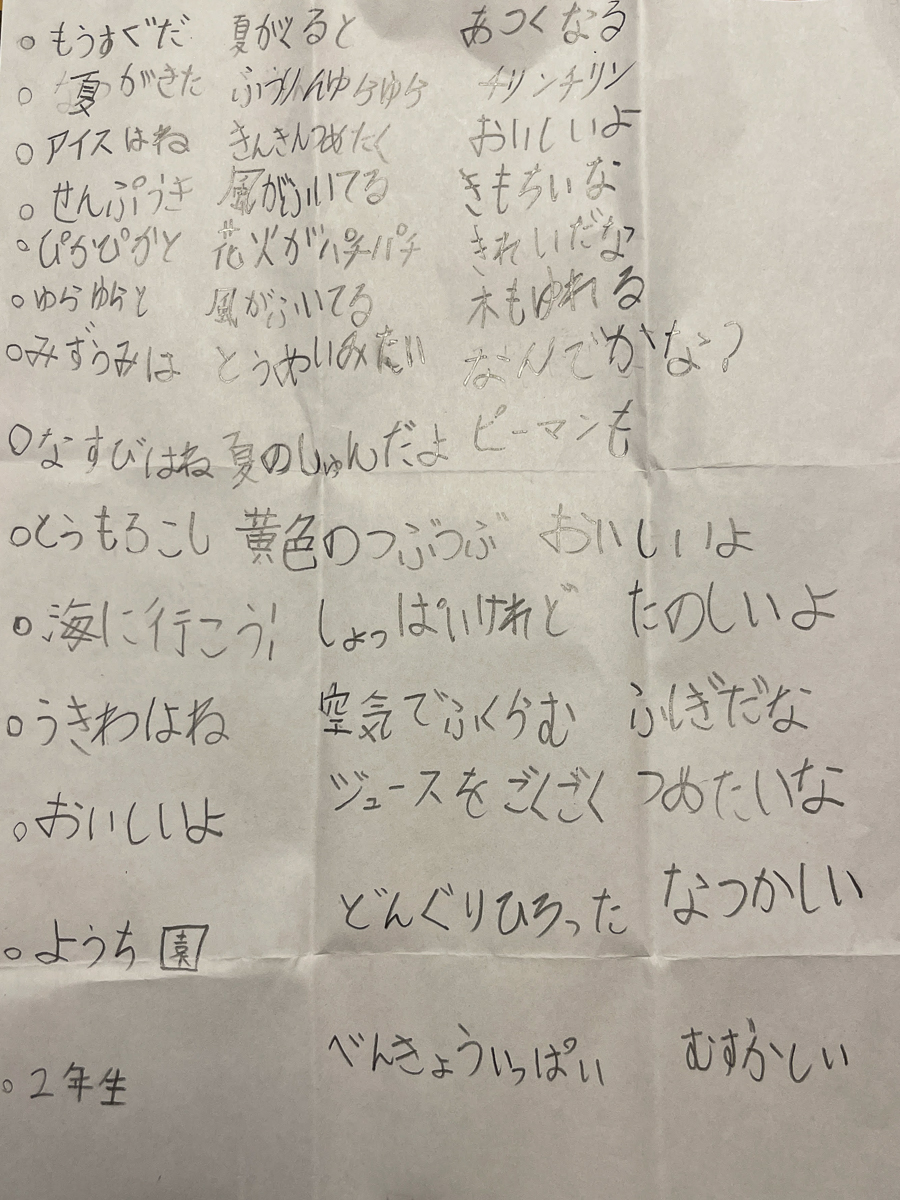 ○もうすぐだ 夏がくると あつくなる
○夏がきた ふうりんゆらゆら チリンチリン
○アイスはね きんきんつめたく おいしいよ
○せんぷうき 風がふいてる きもちいな
○ぴかぴかと 花火がパチパチ きれいだな
○ゆらゆらと 風がふいてる 木もゆれる
○みずうみは とうめいみたい なんでかな?
○なすびはね 夏のしゅんだよ ピーマンも
○とうもろこし 黄色のつぶつぶ おいしいよ
○海に行こう! しょっぱいけれど たのしいよ
○うきわはね 空気でふくらむ ふしぎだな
○おいしいよ ジュースをごくごく つめたいな
○ようち園 どんぐりひろった なつかしい
○2年生 べんきょういっぱい むずかしい